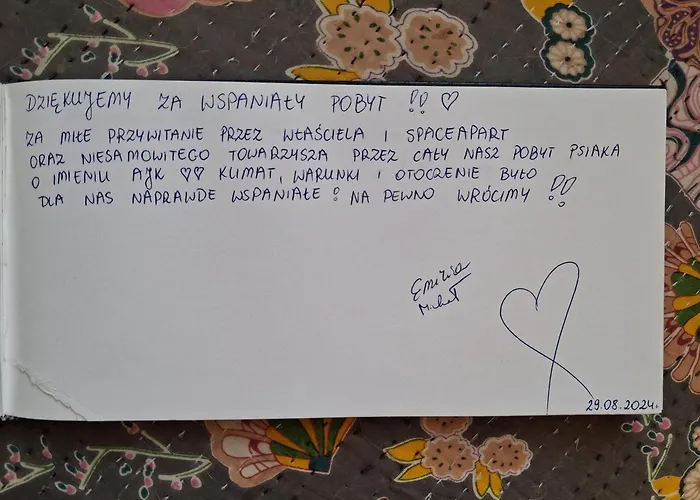 DZIĘKUJEMY ZA WSPANIAŁY POBYT !! ♡
ZA MIŁE PRZYWITANIE PRZEZ WŁAŚCIELA I SPACEAPART
ORAZ NIESAMOWITEGO TOWARZYSZA PRZEZ CAŁY NASZ POBYT PSIAKA
O IMIENIU AJK ♡♡ KLIMAT, WARUNKI I OTOCZENIE BYŁO
DLA NAS NAPRAWDE WSPANIAŁE ! NA PEWNO WRÓCIMY !!
Michał
29.08.2024r.